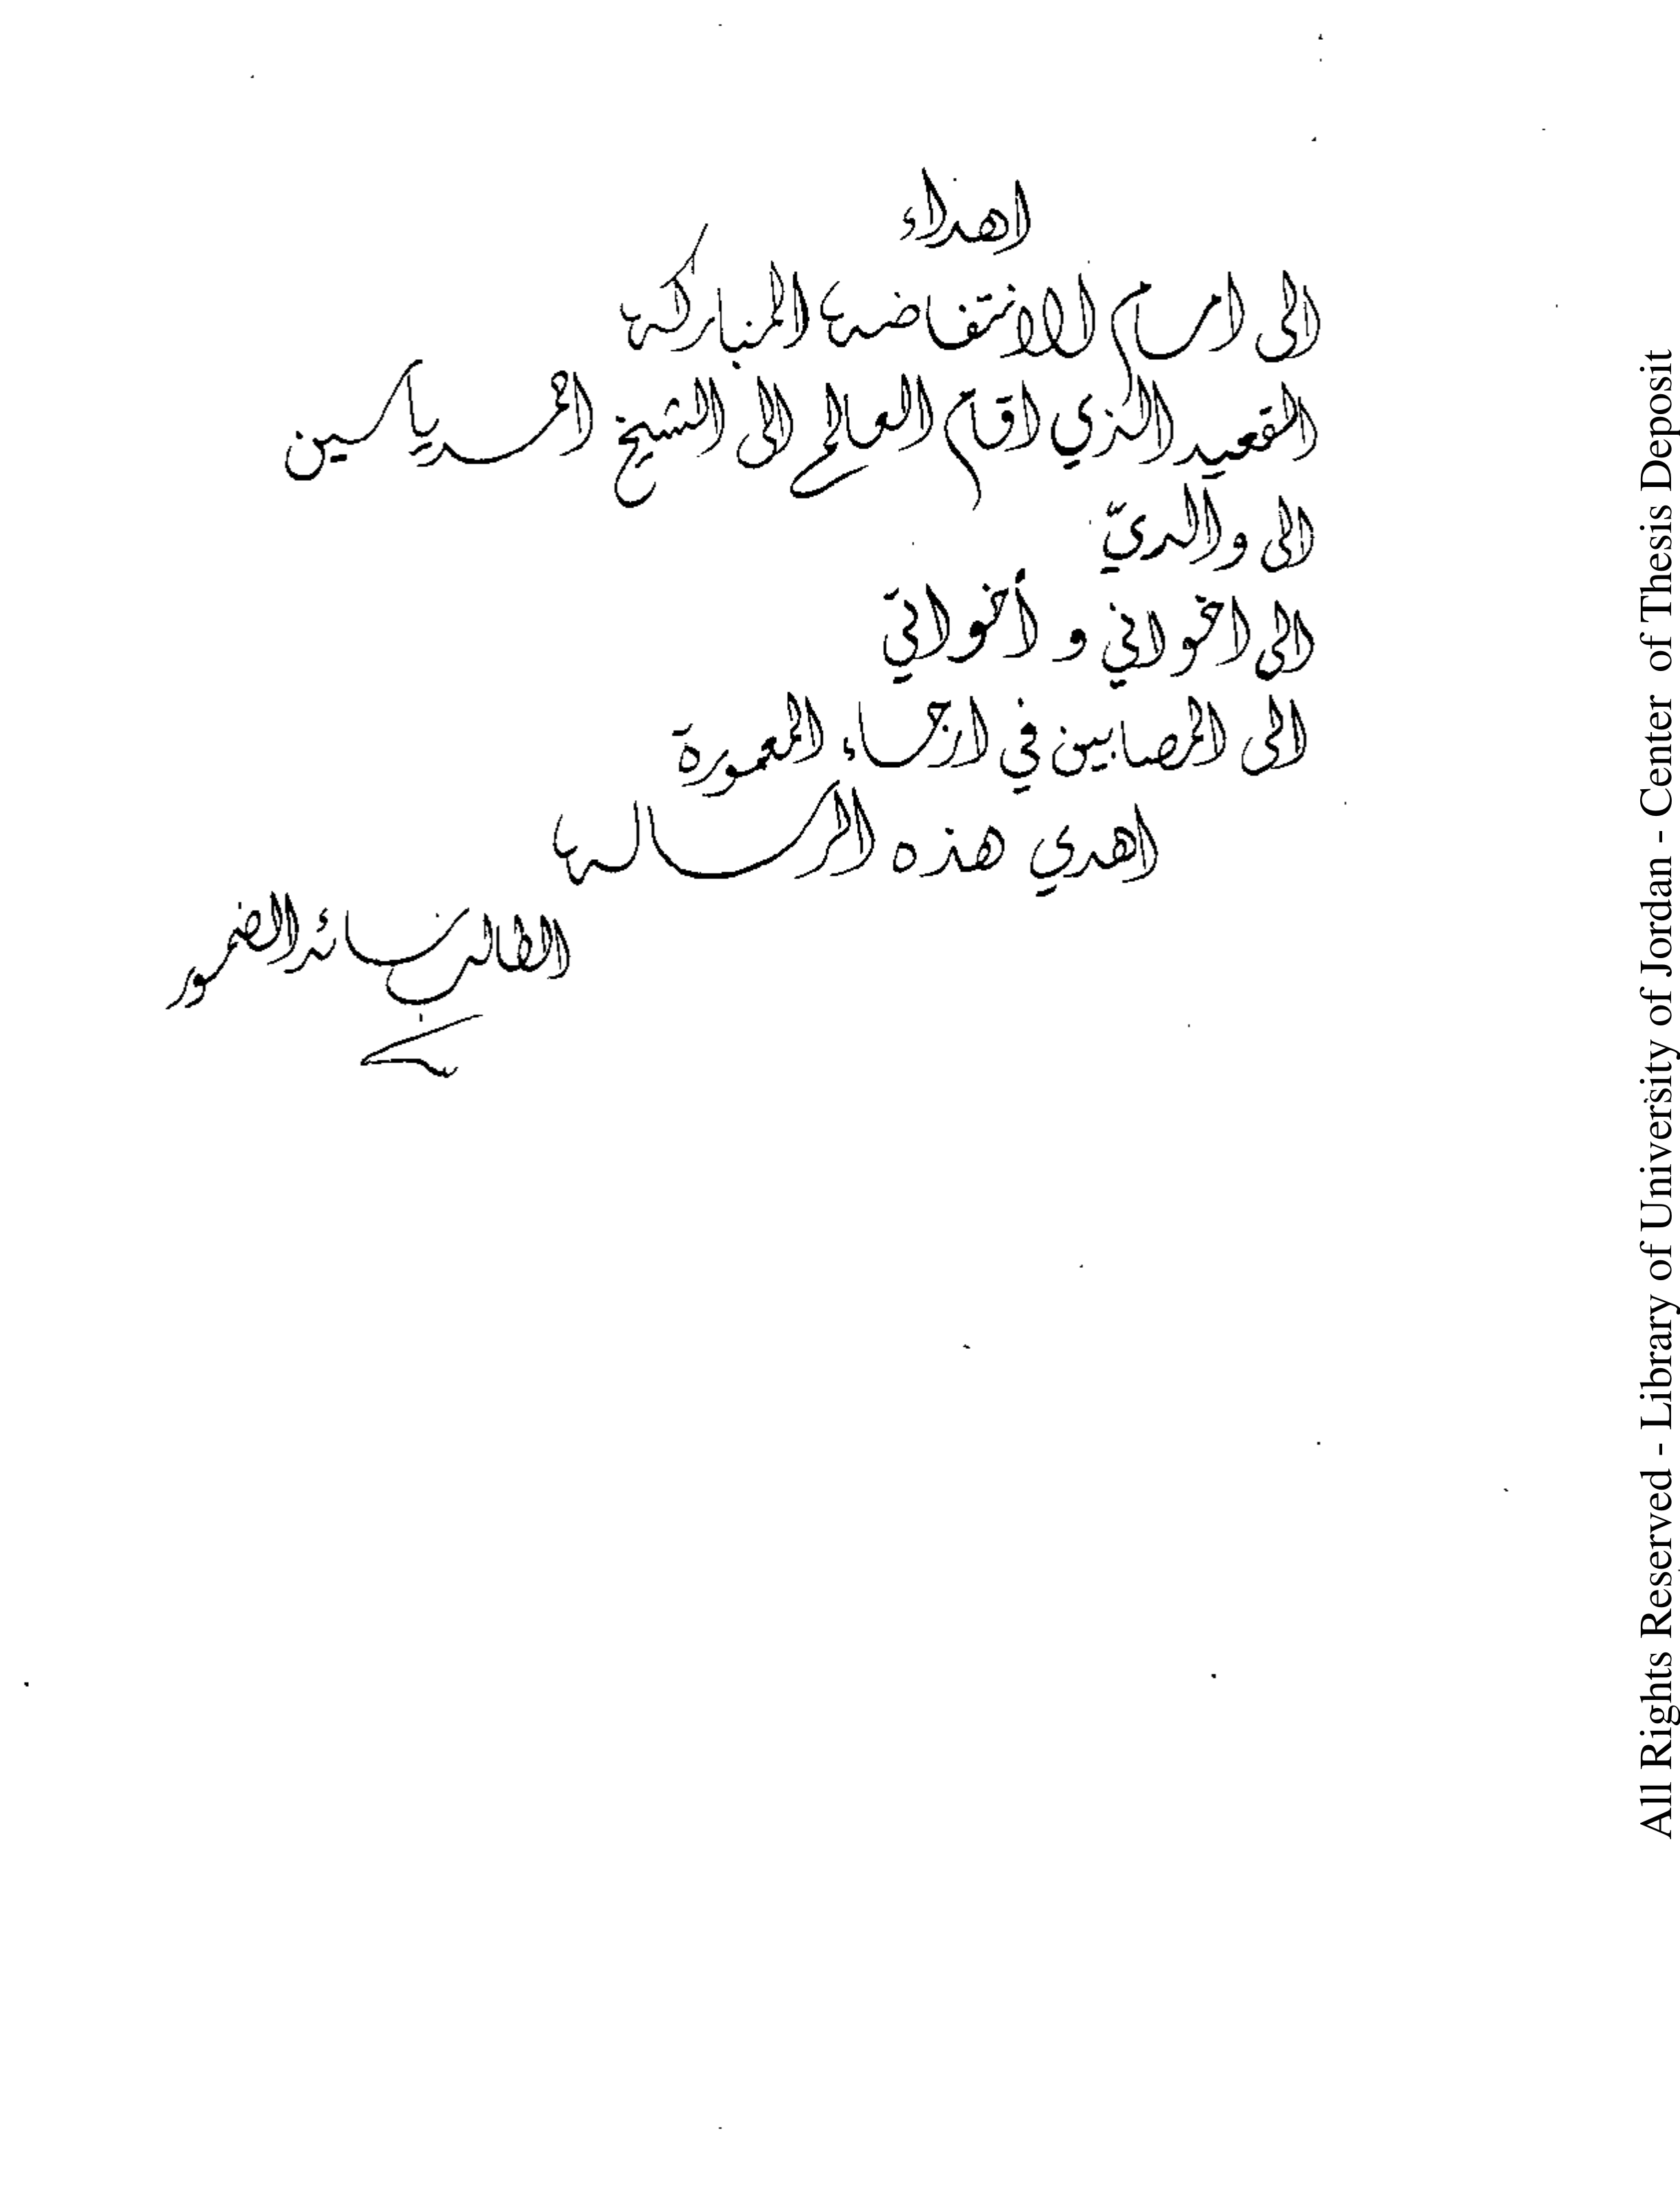 اهداء
الى امام الانتفاضه المباركه
القعيد الذي اقام العالم الى الشيخ احمد ياسين
الى والديّ
الى اخواني و أخواتي
الى المصابين في ارجاء المعمورة
اهدي هذه الرساله
الطالب سائد الضمور
All Rights Reserved - Library of University of Jordan - Center of Thesis Deposit